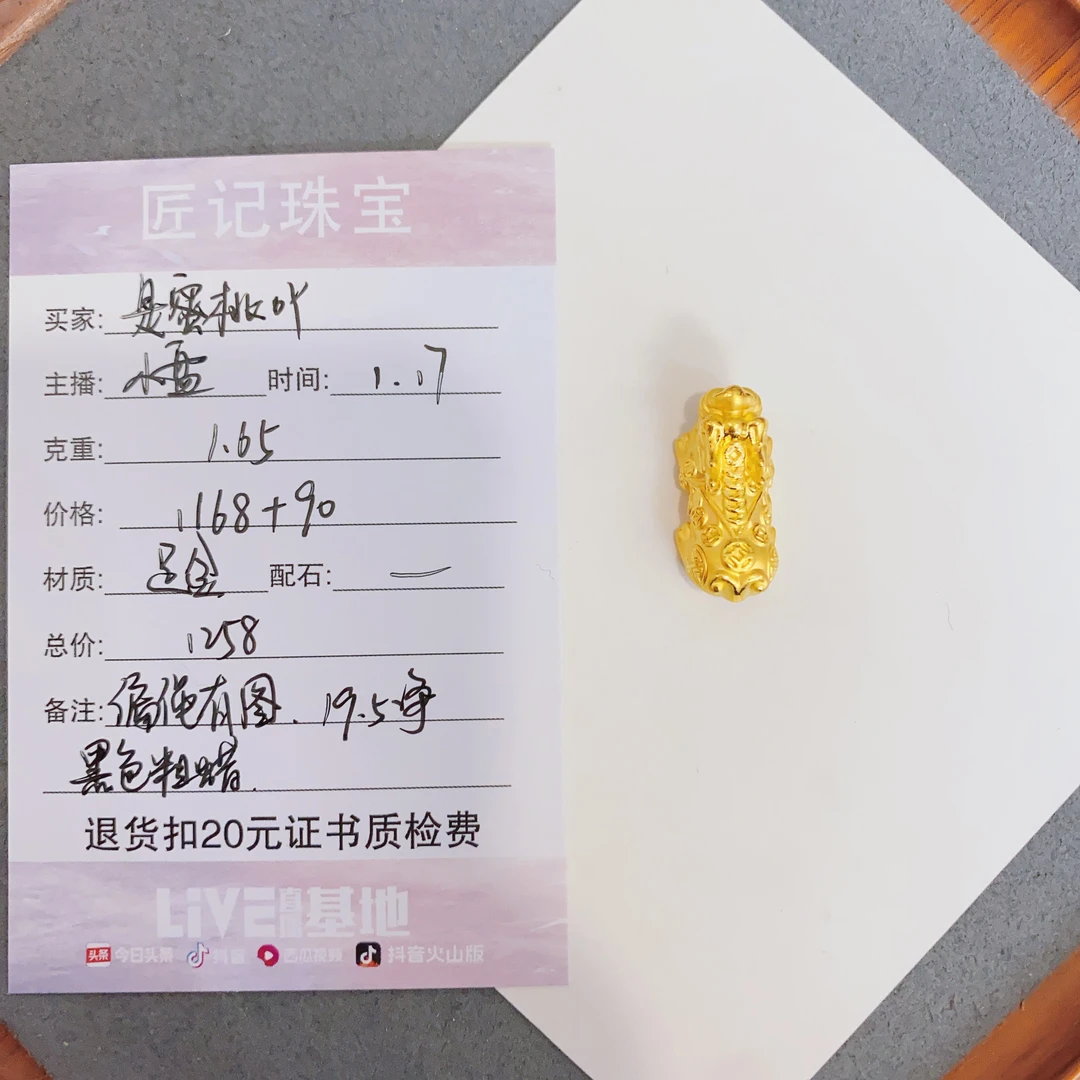 匠记珠宝
买家: 是蜜桃吖
主播: 水蓝 时间: 1.17
克重: 1.65
价格: 1168+90
材质: 足金 配石: 一
总价: 1258
备注: 编绳有图. 19.5净
黑色粗蜡.
退货扣20元证书质检费
LiVE直播基地
头条 今日头条 抖音 西瓜视频 抖音火山版